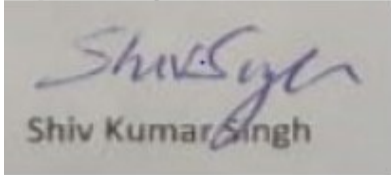 Shiv Singh
Shiv Kumar Singh